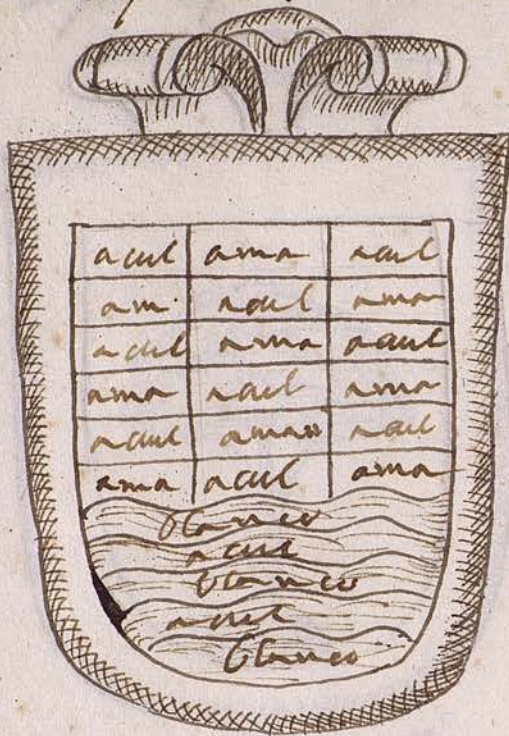 acul ama acul
am. acul ama
acul ama acul
ama acul ama
acul amao acul
ama acul ama
blanco
acul
blanco
acul
blanco